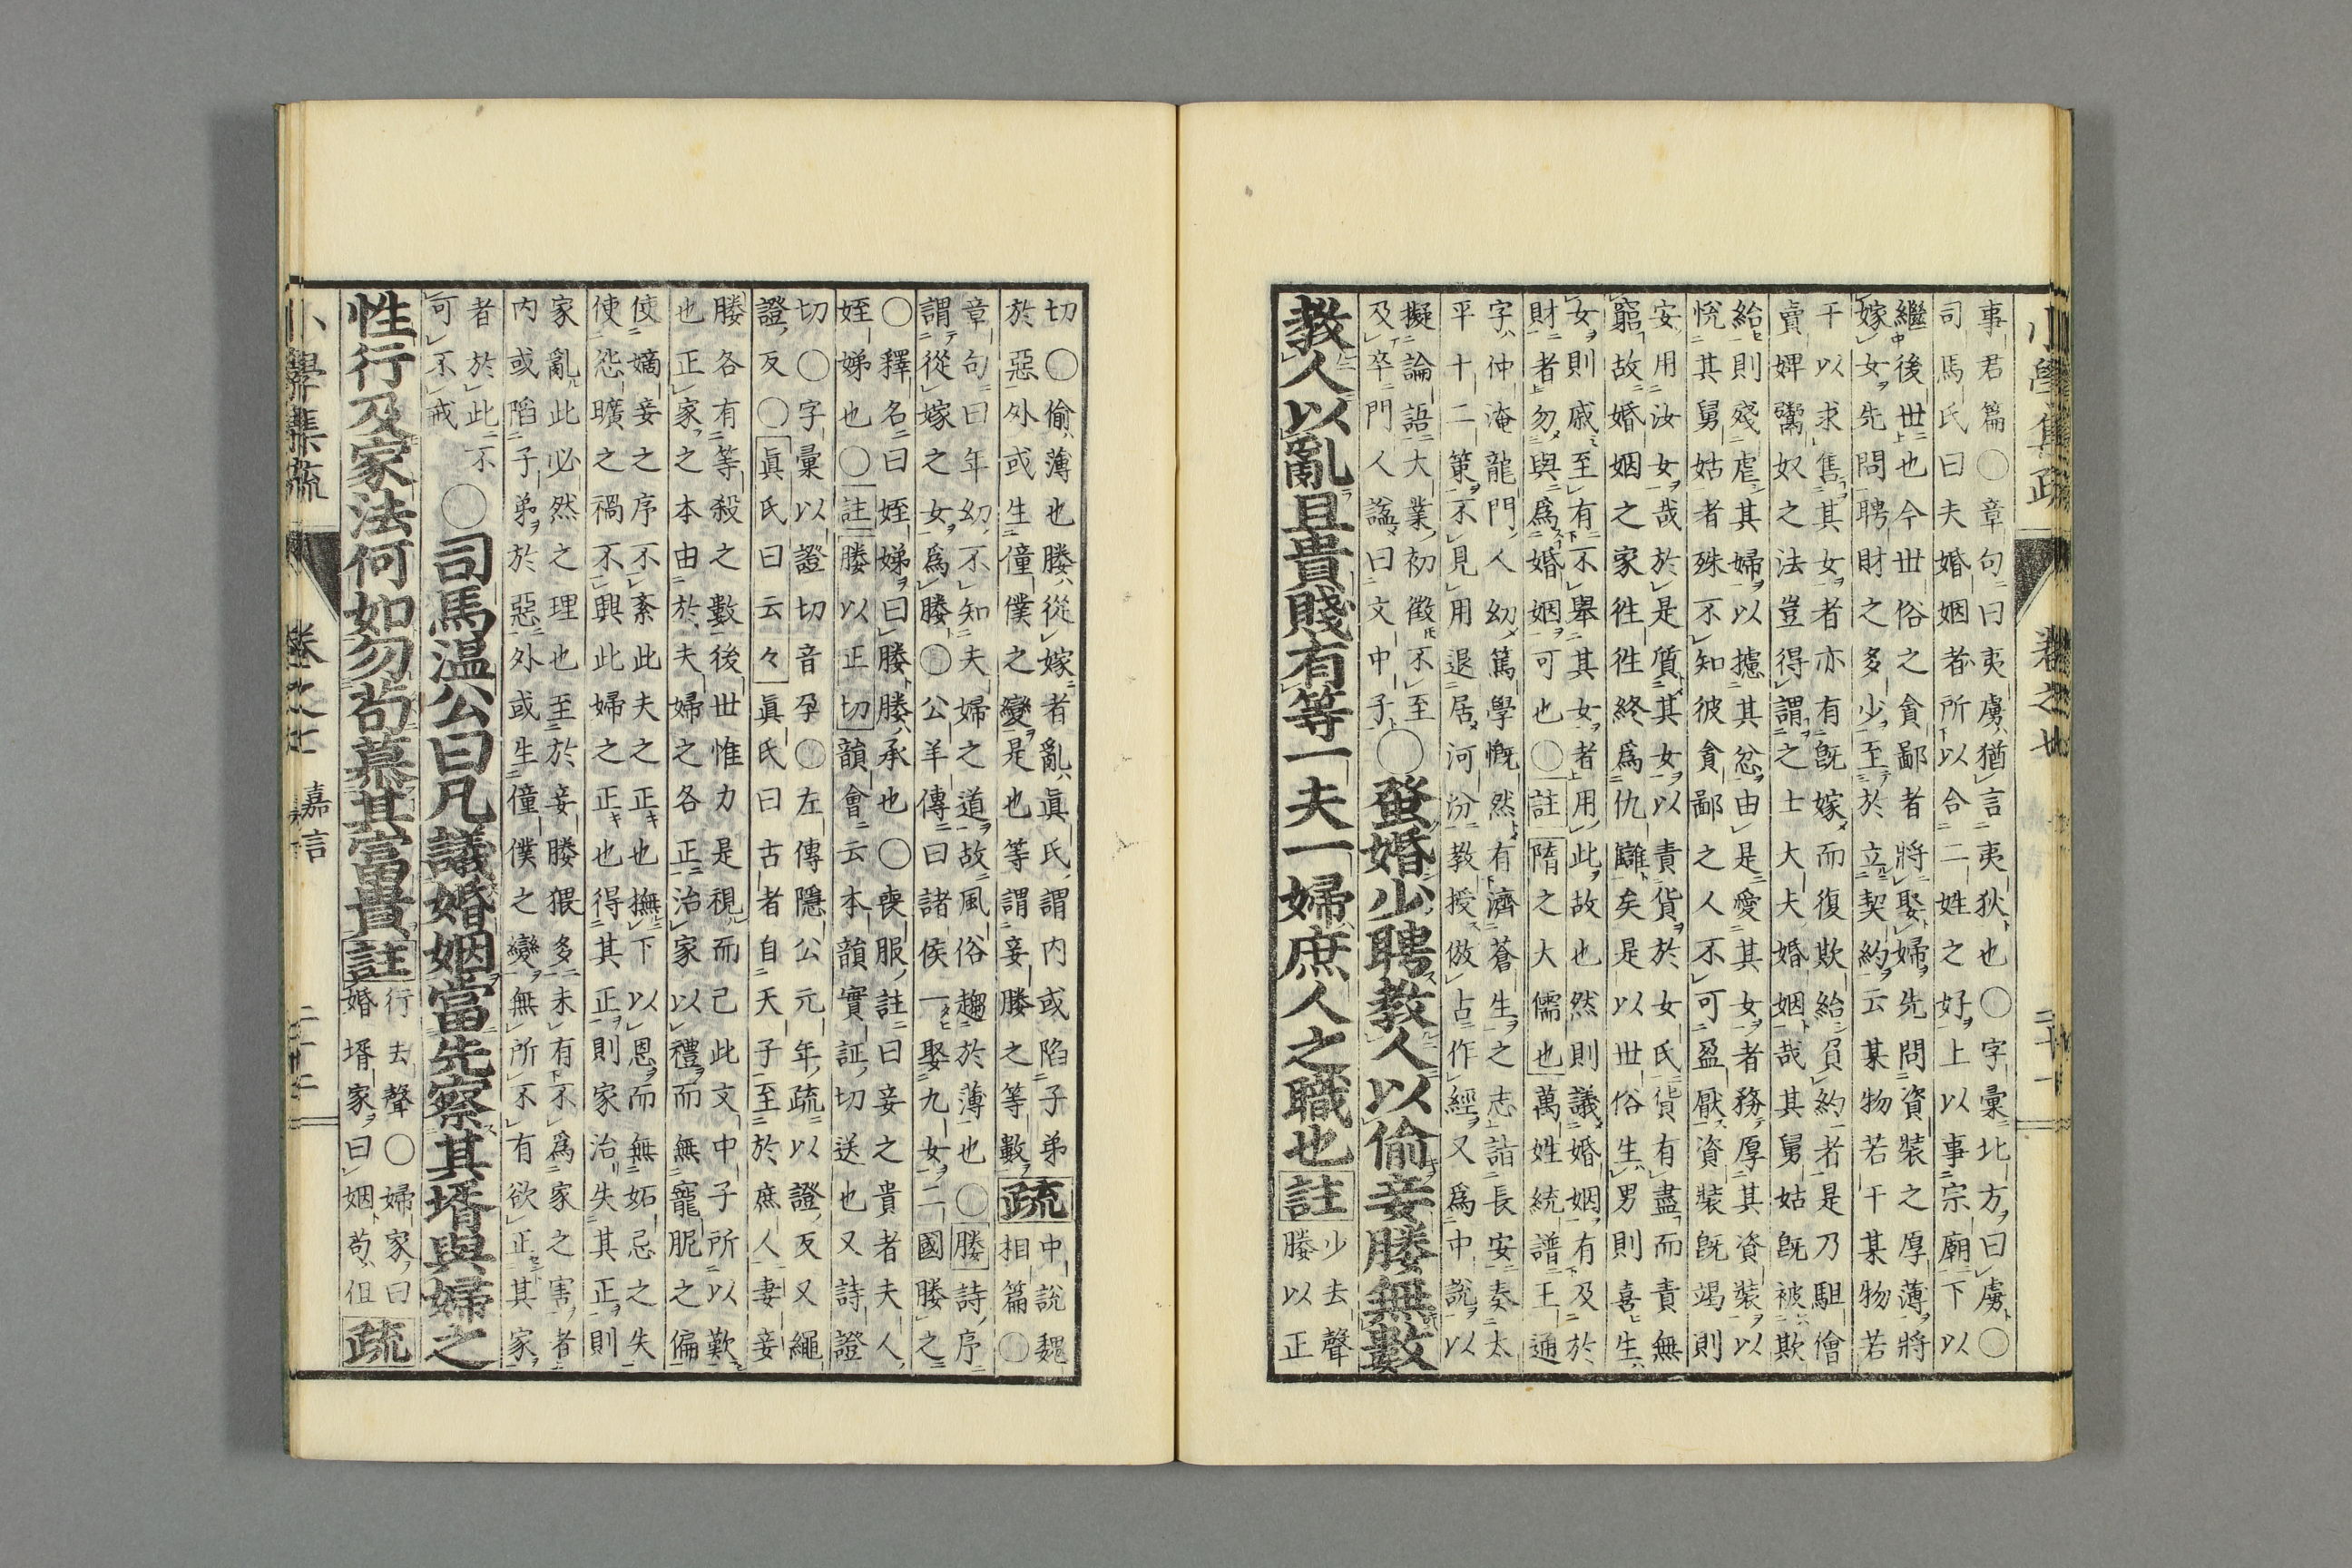 事君篇〇章句曰夷虜猶言夷狄也〇字彙北方曰虜〇
司馬氏曰夫婚姻者所以合二姓之好上以事宗廟下以
繼後世也今世俗之貪鄙者將娶婦先問資裝之厚薄將
嫁女先問聘財之多少至於立契約云某物若干某物若
干以求售其女者亦有既嫁而復欺紿負約者是乃駔儈
賣婢鬻奴之法豈得謂之士大夫婚姻哉其舅姑既被欺
紿則殘虐其婦以攄其忿由是愛其女者務厚其資裝以
悅其舅姑者殊不知彼貪鄙之人不可盈厭資裝既竭則
安用汝女哉於是質其女以責貨於女氏貨有盡而責無
窮故婚姻之家往往終爲仇讎矣是以世俗生男則喜生
女則戚至有不舉其女者用此故也然則議婚姻有及於
財者勿與爲婚姻可也〇註隋之大儒也萬姓統譜王通
字仲淹龍門人幼篤學慨然有濟蒼生之志詣長安奏太
平十二策不見用退居河汾教授倣古作經又爲中說以
擬論語大業初徵不至
及卒門人謚曰文中子〇蚤婚少聘教人以偷妾媵無數
教人以亂且貴賤有等一夫一婦庶人之職也註少去聲
媵以正
切〇偷薄也媵從嫁者亂眞氏謂内或陷子弟疏中說魏
於惡外或生僮僕之變是也等謂妾媵之等數相篇〇
章句曰年幼不知夫婦之道故風俗趨於薄也〇媵詩序
謂從嫁之女爲媵〇公羊傳曰諸侯一娶九女二國媵之
〇釋名曰姪娣曰媵媵承也〇喪服註曰妾之貴者夫人
姪娣也〇註媵以正切韻會云本韻實証切送也又詩證
切〇字彙以證切音孕〇左傳隱公元年疏以證反又繩
證反〇眞氏曰云々眞氏曰古者自天子至於庶人妻妾
媵各有等殺之數後世惟力是視而已此文中子所以歎
也正家之本由於夫婦之各正治家以禮而無寵昵之偏
使嫡妾之序不紊此夫之正也撫下以恩而無妬忌之失
使怨曠之禍不興此婦之正也得其正則家治失其正則
家亂此必然之理也至於妾媵猥多未有不爲家之害者
内或陷子弟於惡外或生僮僕之變無所不有欲正其家
者於此不
可不戒〇司馬温公曰凡議婚姻當先察其壻與婦之
性行及家法何如勿苟慕其富貴註行去聲〇婦家曰
婚壻家曰姻苟但疏
小學集疏 卷之七 二十一
小學集疏 卷之七 嘉言